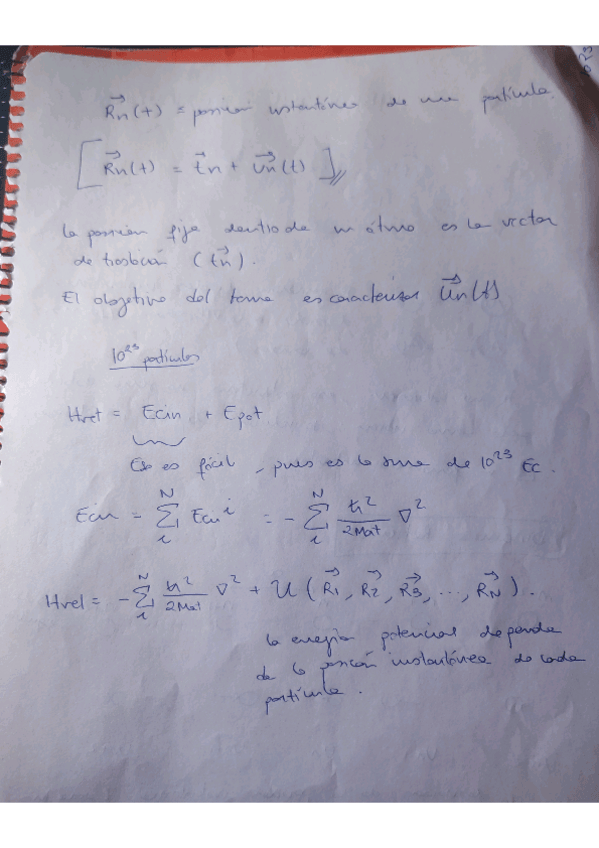 R⃗n(t) = posición instantánea de una partícula.
[ R⃗n(t) = t⃗n + u⃗n(t) ]
La posición fija dentro de un átomo es la vector
de traslación (t⃗n).
El objetivo del tema es caracterizar u⃗n(t)
10²³ partículas
Hret = Ecin + Epot
Eso es fácil, pues es la suma de 10²³ Ec.
Ecin = Σᵢᴺ Ecinⁱ = - Σᵢᴺ ħ²/2Mat ∇²
Hret = - Σᵢᴺ ħ²/2Mat ∇² + U (R⃗1, R⃗2, R⃗3, ..., R⃗N).
la energía potencial depende
de la posición instantánea de cada
partícula.